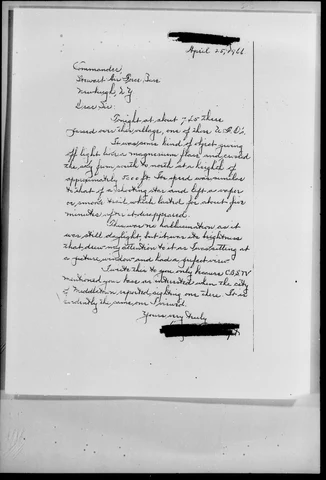 April 25, 1966
Commander,
Stewart Air Force Base
Newburgh, N.Y.
Dear Sir:
Tonight at about 7:25 there
passed over this village, one of those U.F.O's.
It was some kind of object giving
off light like a magnesium flare and crossed
the sky from south to north at a height of
approximately 5000 ft. Its speed was similar
to that of a shooting star and left a vapor
or smoke trail which lasted for about five
minutes after it disappeared.
This was no hallucination as it
was still daylight, but it was its brightness
that drew my attention to it as I was sitting at
a picture window and had a perfect view
I write this to you only because CBS TV
mentioned your base as interested when the city
of Middletown reported sighting one there. It is
evidently the same one I viewed.
Yours very truly